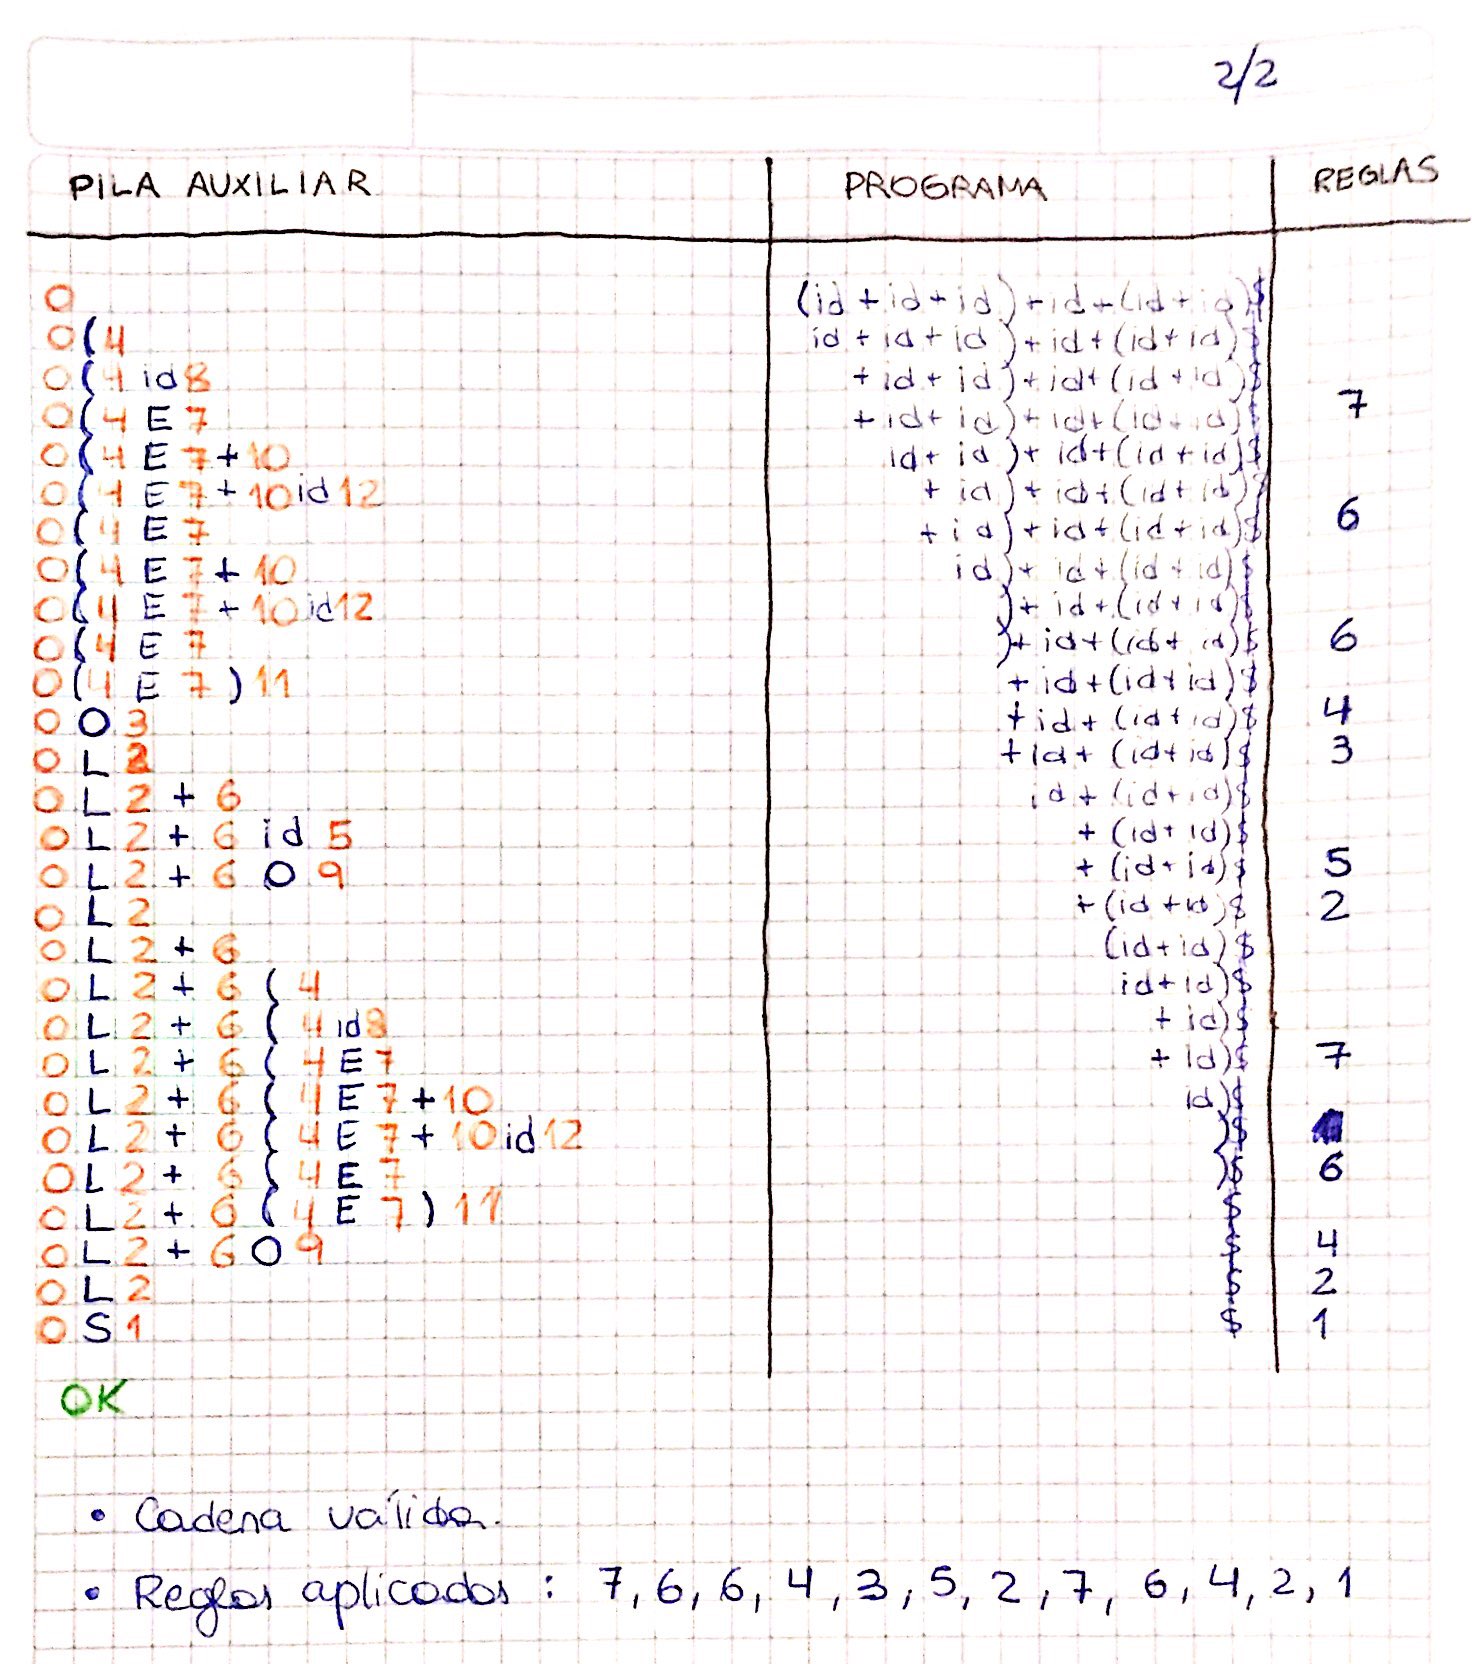 2/2
PILA AUXILIAR PROGRAMA REGLAS
0 (id+id+id)+id+(id+id)$
0(4 id+id+id)+id+(id+id)$
0(4 id8 +id+id)+id+(id+id)$
0(4 E 7 +id+id)+id+(id+id)$ 7
0(4 E 7+10 id+id)+id+(id+id)$
0(4 E 7+10id12 +id)+id+(id+id)$
0(4 E 7 +id)+id+(id+id)$ 6
0(4 E 7+10 id)+id+(id+id)$
0(4 E 7+10id12 )+id+(id+id)$
0(4 E 7 )+id+(id+id)$ 6
0(4 E 7)11 +id+(id+id)$
0 O 3 +id+(id+id)$ 4
0 L 2 +id+(id+id)$ 3
0 L 2 + 6 id+(id+id)$
0 L 2 + 6 id 5 +(id+id)$
0 L 2 + 6 O 9 +(id+id)$ 5
0 L 2 +(id+id)$ 2
0 L 2 + 6 (id+id)$
0 L 2 + 6 ( 4 id+id)$
0 L 2 + 6 ( 4 id8 +id)$
0 L 2 + 6 ( 4 E 7 +id)$ 7
0 L 2 + 6 ( 4 E 7+10 id)$
0 L 2 + 6 ( 4 E 7+10id12 )$
0 L 2 + 6 ( 4 E 7 )$ 6
0 L 2 + 6 ( 4 E 7)11 $
0 L 2 + 6 O 9 $ 4
0 L 2 $ 2
0 S 1 $ 1
OK
• Cadena válida.
• Reglas aplicadas: 7, 6, 6, 4, 3, 5, 2, 7, 6, 4, 2, 1